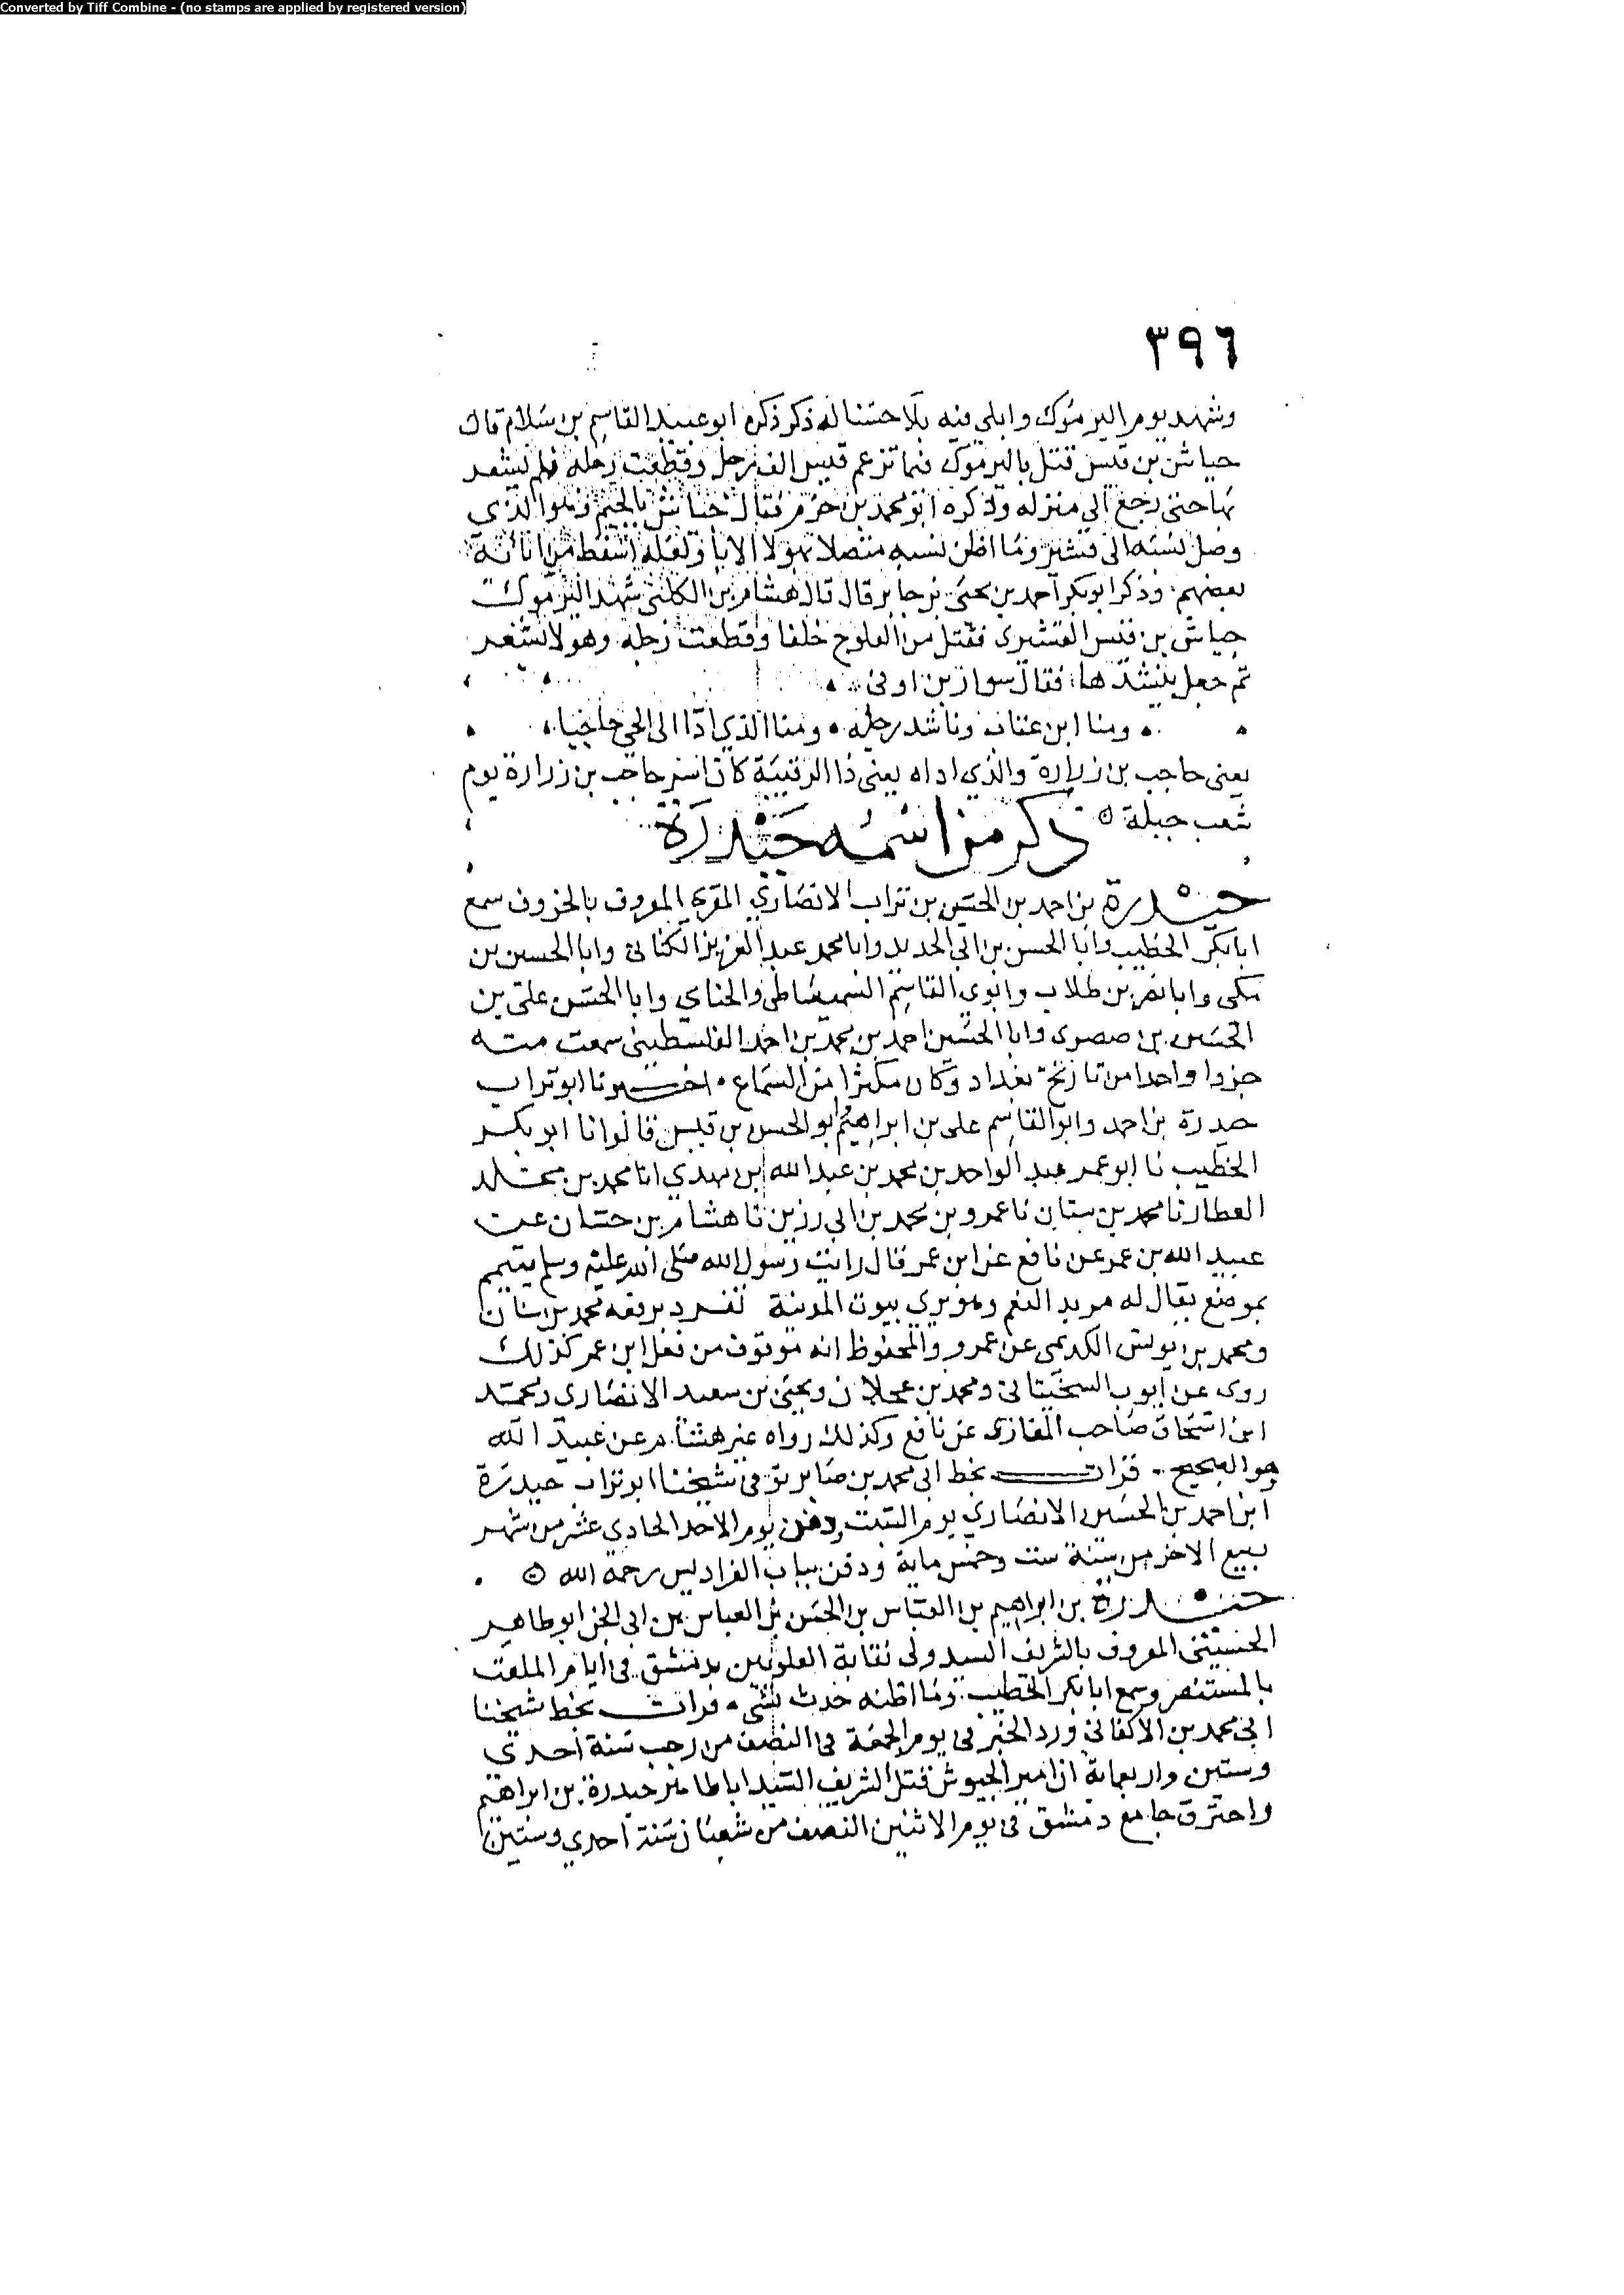 Converted by Tiff Combine - (no stamps are applied by registered version)
٣٩٦
وشهد يوم اليرموك وابلى فيه بلا حسنا له ذكر ذكره ابو عبيد القاسم بن سلام قال
حياش بن قيس قتل باليرموك فيما تزعم قيس الف رجل وقطعت رجله فلم يشعر
بها حتى رجع الى منزله وذكره ابو محمد بن حزم فقال جياش بالجيم وهو الذي
وصل نسبه الى قشير وما اظن نسبه متصلا بهولا الابا ولعله اسقط من ابائه
بعضهم وذكر ابو بكر احمد بن يحيى بن جابر قال قال هشام بن الكلبي شهد اليرموك
حياش بن قيس القشيري فقتل من العلوج خلقا وقطعت رجله وهو لا يشعر
ثم جعل ينشدها فقال سوار بن اوفى
ومنا ابن عتاب وناشد رجله ومنا الذي ادا الى الحي حاجبا
يعني حاجب بن زرارة والذي اداه يعني ذا الرقيبة كان اسر حاجب بن زرارة يوم
شعب جبلة ذكر من اسمه حيدرة
حيدرة بن احمد بن الحسين بن تراب الانصاري المقري المعروف بالخروف سمع
ابا بكر الخطيب وابا الحسن بن ابي الحديد وابا محمد عبد العزيز الكتاني وابا الحسين بن
مكي وابا نصر بن طلاب وابوي القاسم السميساطي والحناي وابا الحسن علي بن
الحسين بن صصرى وابا الحسين احمد بن محمد بن احمد الفلسطيني سمعت منه
جزوا واحدا من تاريخ بغداد وكان مكثرا من السماع اخبرنا ابو تراب
حيدرة بن احمد وابو القاسم علي بن ابراهيم وابو الحسن بن قبيس قالوا نا ابو بكر
الخطيب نا ابو عمر عبد الواحد بن محمد بن عبد الله بن مهدي انا محمد بن مخلد
العطار نا محمد بن سنان نا عمرو بن محمد بن ابي رزين نا هشام بن حسان عن
عبيد الله بن عمر عن نافع عن ابن عمر قال رايت رسول الله صلى الله عليه وسلم يتيمم
بموضع يقال له مربد النعم وهو يرى بيوت المدينة تفرد برفعه محمد بن سنان
ومحمد بن يونس الكديمي عن عمرو والمحفوظ انه موقوف من فعل ابن عمر كذلك
روى عن ايوب السختياني ومحمد بن عجلان ويحيى بن سعيد الانصاري ومحمد
ابن اسحاق صاحب المغازي عن نافع وكذلك رواه غير هشام عن عبيد الله
هو الصحيح قرات بخط ابي محمد بن صابر توفي شيخنا ابو تراب حيدرة
ابن احمد بن الحسين الانصاري يوم السبت ودفن يوم الاحد الحادي عشر من شهر
ربيع الاخر من سنة ست وخمس ماية ودفن بباب الفراديس رحمه الله
حيدرة بن ابراهيم بن العباس بن الحسن بن العباس بن ابي الجن ابو طاهر
الحسيني المعروف بالشريف السيد ولي نقابة العلويين بدمشق في ايام الملقب
بالمستنصر وسمع ابا بكر الخطيب وما اظنه حدث بشي قرات بخط شيخنا
ابي محمد بن الاكفاني ورد الخبر في يوم الجمعة في النصف من رجب سنة احدى
وستين واربعماية ان امير الجيوش قتل الشريف السيد ابا طاهر حيدرة بن ابراهيم
واحترق جامع دمشق في يوم الاثنين النصف من شعبان سنة احدي وستين